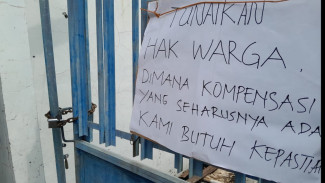 TUNAIKAN
HAK WARGA.
DIMANA KOMPENSASI
YANG SEHARUSNYA ADA
KAMI BUTUH KEPASTIAN